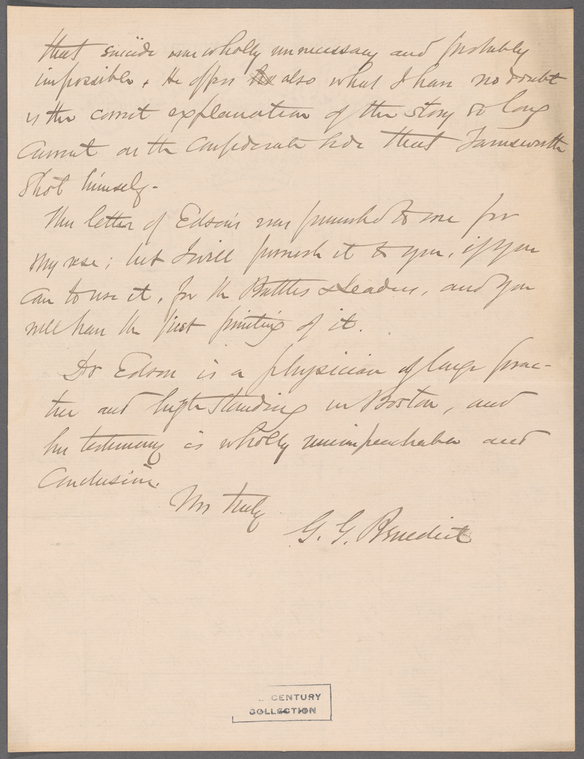 that suicide was wholly unnecessary and probably
impossible. He offers the also what I have no doubt
is the correct explanation of the story so long
current on the Confederate side that Farnsworth
shot himself.
This letter of Edson's was furnished to me for
my use; but I will furnish it to you, if you
care to use it, for the Battles & Leaders, and you
will have the first printing of it.
Dr Edson is a physician of large prac-
tice and high standing in Boston, and
his testimony is wholly unimpeachable and
conclusive.
Yrs truly
G. G. Benedict
CENTURY
COLLECTION